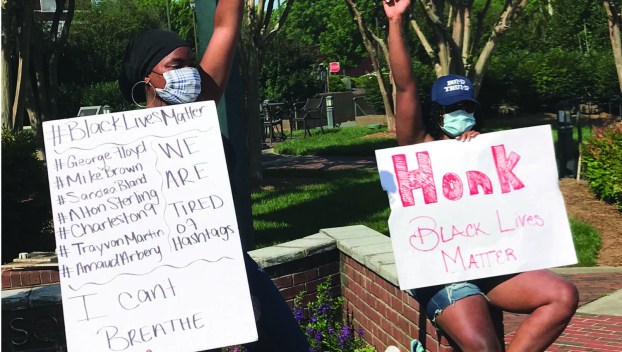 #BlackLivesMatter
#George Floyd
#Mike Brown
#Sandra Bland
#Alton Sterling
#Charleston9
#Trayvon Martin
#Amaud Arbery
WE
ARE
TIRED
Of
Hashtags
I Cant
BREATHE
Honk
Black Lives
Matter